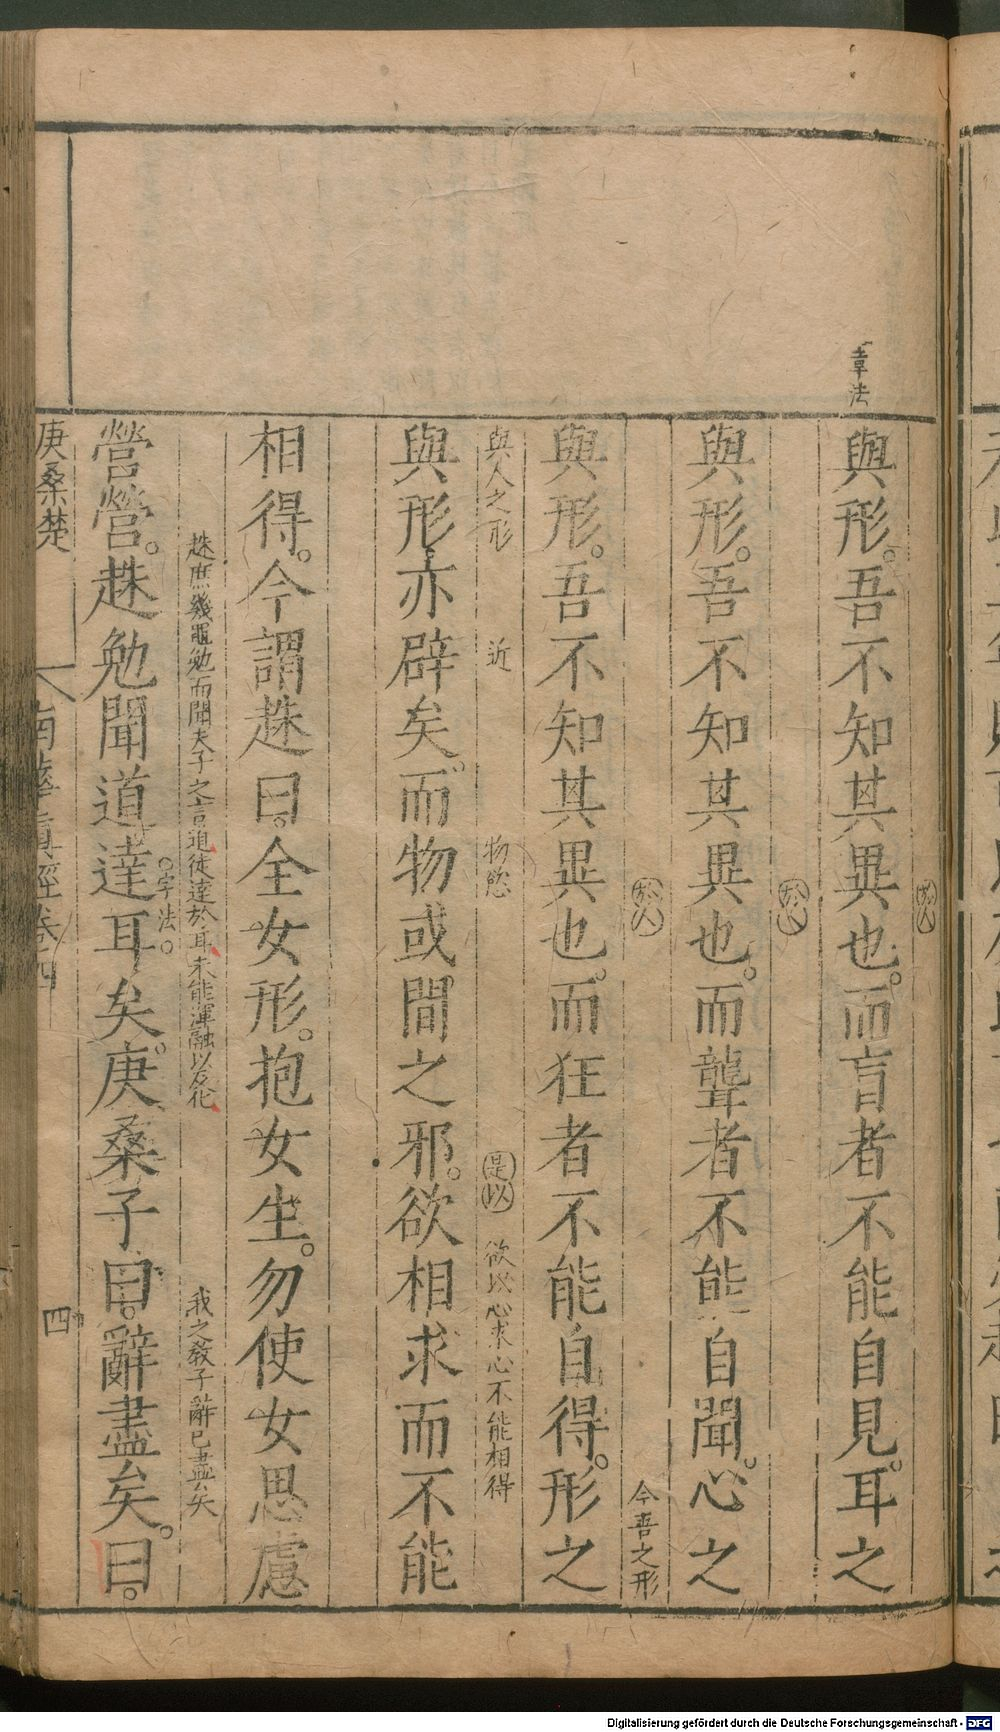 章法
於人
與形。吾不知其異也。而盲者不能自見。耳之
於心
與形。吾不知其異也。而聾者不能自聞。心之
於人
今吾之形
與形。吾不知其異也。而狂者不能自得。形之
與人之形
近
物慾
是以
欲以心求心不能相得
與形亦辟矣。而物或間之邪。欲相求而不能
相得。今謂趎曰。全女形。抱女生。勿使女思慮
趎庶幾黽勉而聞夫子之言道徒達於耳未能渾融以反化
我之教子辭已盡矣
營營。趎勉聞道達耳矣。庚桑子曰。辭盡矣。曰。
字法。
庚桑楚
南華真經卷四
四
Digitalisierung gefördert durch die Deutsche Forschungsgemeinschaft - DFG